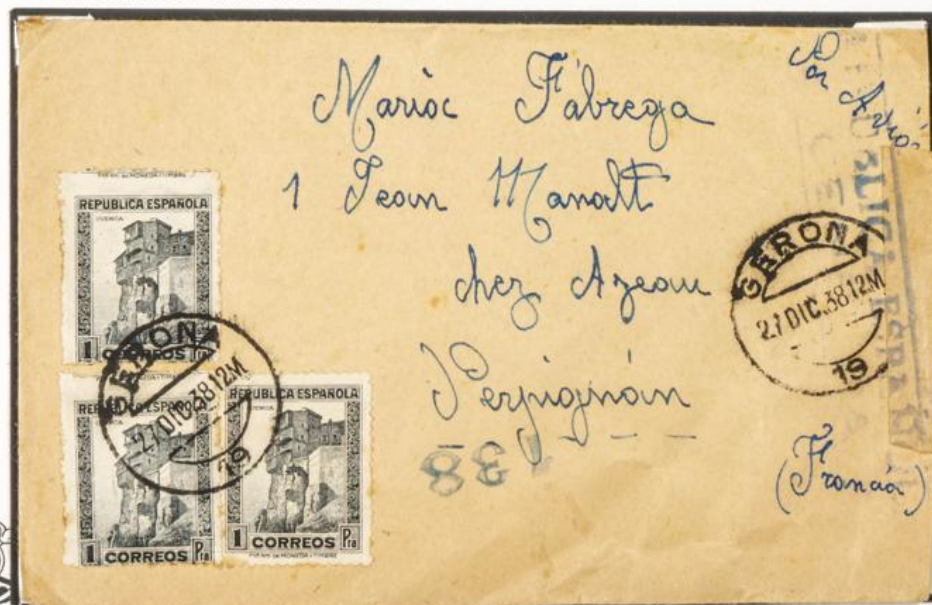 Por Avión
Maria Fábrega
1 Jean Manalt
chez Azeau
Perpignán
(Francia)
REPUBLICA ESPAÑOLA
CUENCA
1 CORREOS Pta
REPUBLICA ESPAÑOLA
1 CORREOS Pta
REPUBLICA ESPAÑOLA
CUENCA
1 CORREOS Pta
GERONA
27 DIC.38 12M
19
GERONA
27 DIC.38 12M
19